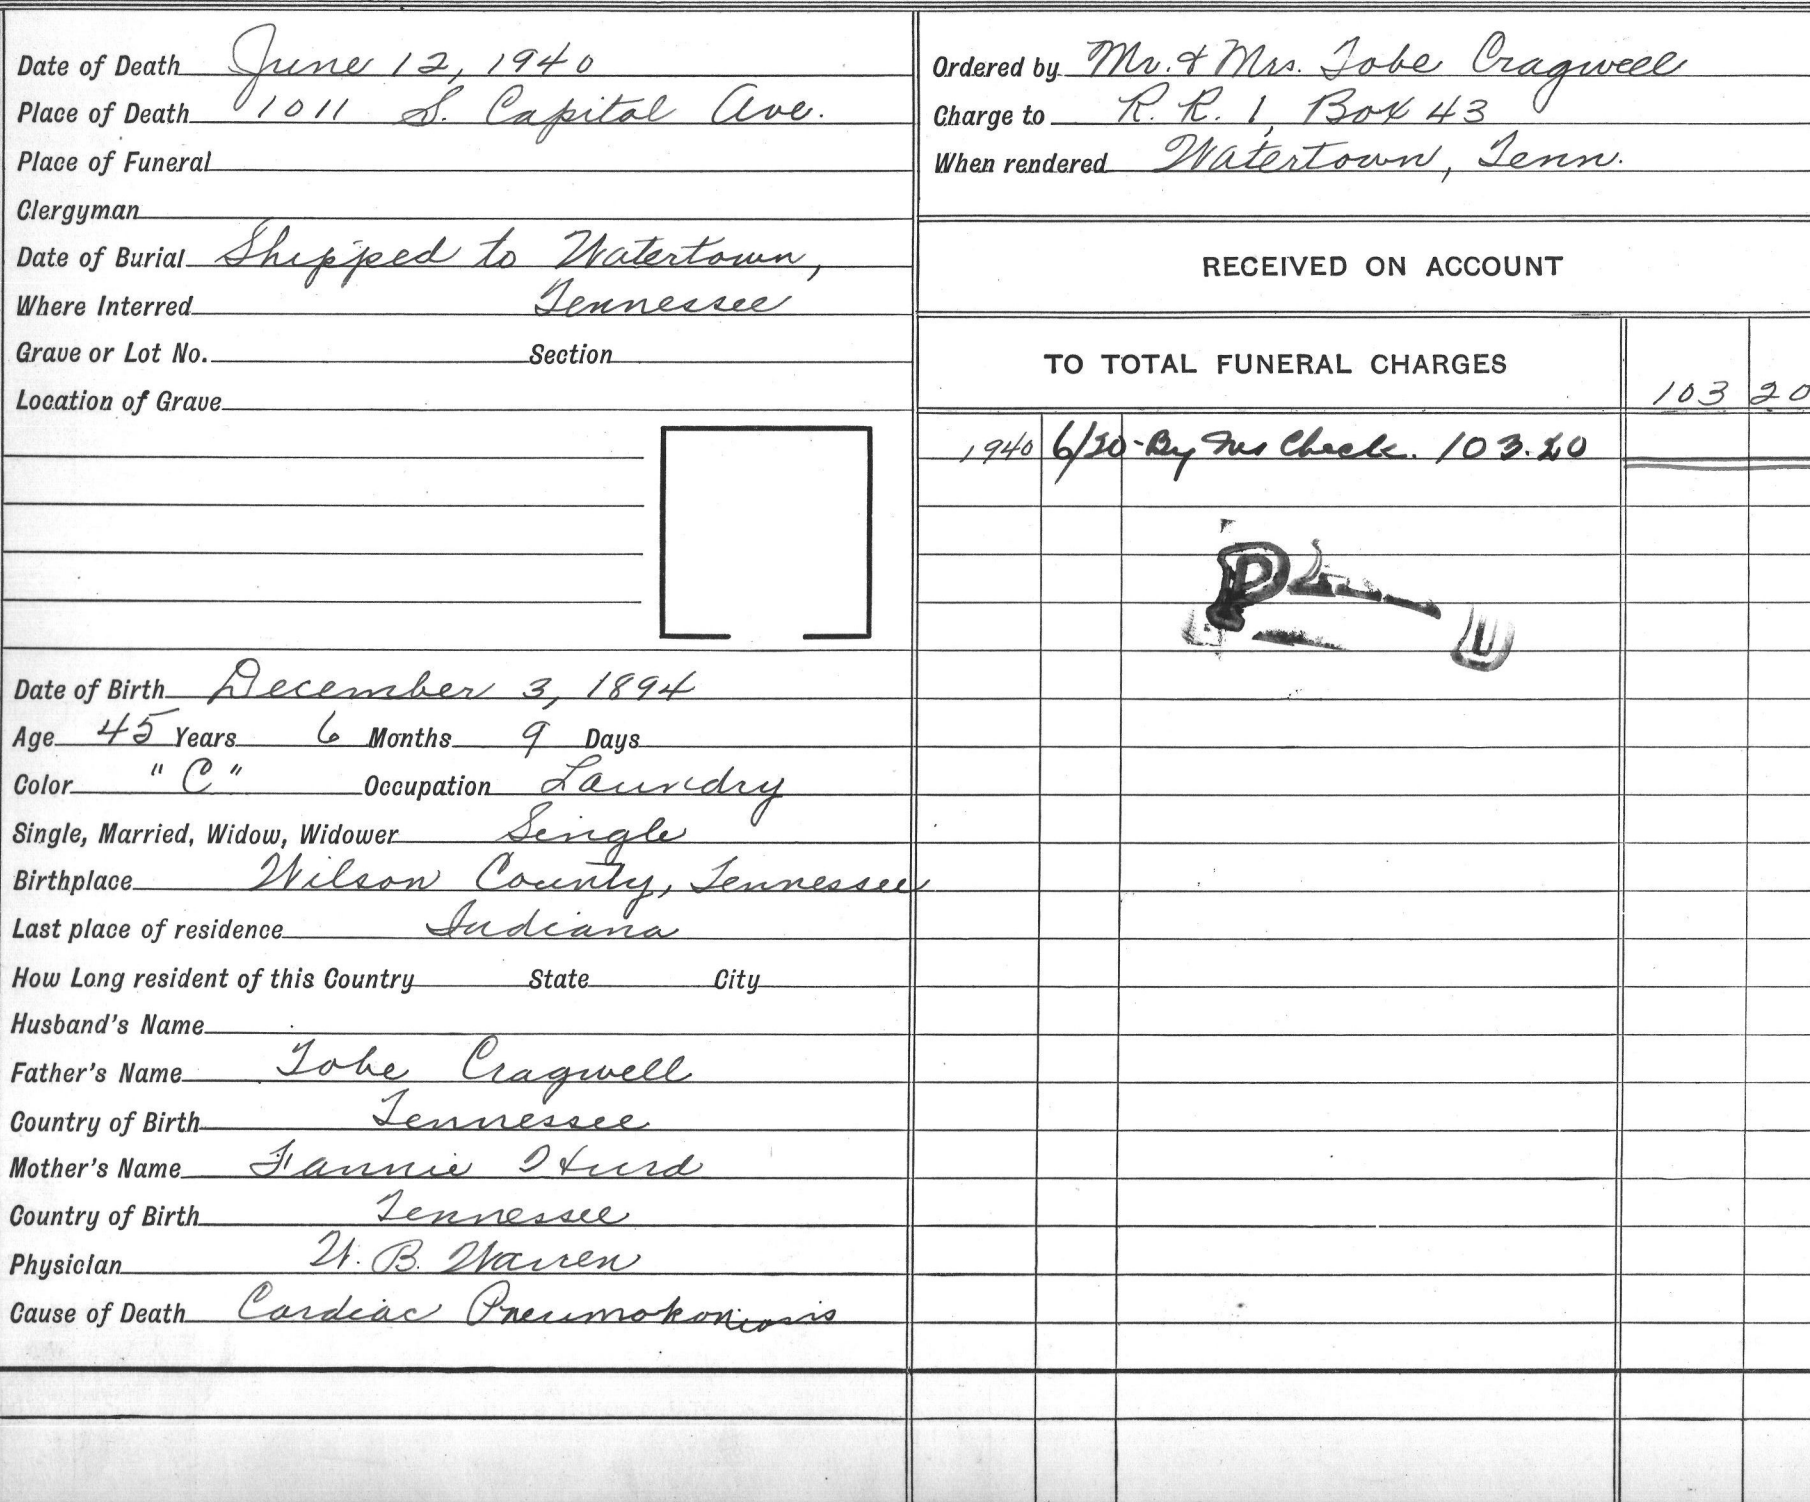 Date of Death June 12, 1940
Place of Death 1011 S. Capitol Ave.
Place of Funeral
Clergyman
Date of Burial Shipped to Watertown,
Where Interred Tennessee
Grave or Lot No. Section
Location of Grave
Date of Birth December 3, 1894
Age 45 Years 6 Months 9 Days
Color "C" Occupation Laundry
Single, Married, Widow, Widower Single
Birthplace Wilson County, Tennessee
Last place of residence Indiana
How Long resident of this Country State City
Husband's Name
Father's Name Tobe Cragwell
Country of Birth Tennessee
Mother's Name Fannie Hurd
Country of Birth Tennessee
Physician W. B. Warren
Cause of Death Cardiac Pneumokoniosis
Ordered by Mr. & Mrs. Tobe Cragwell
Charge to R. R. 1, Box 43
When rendered Watertown, Tenn.
RECEIVED ON ACCOUNT
TO TOTAL FUNERAL CHARGES 103 20
1940 6/20 - By Ins Check. 103.20